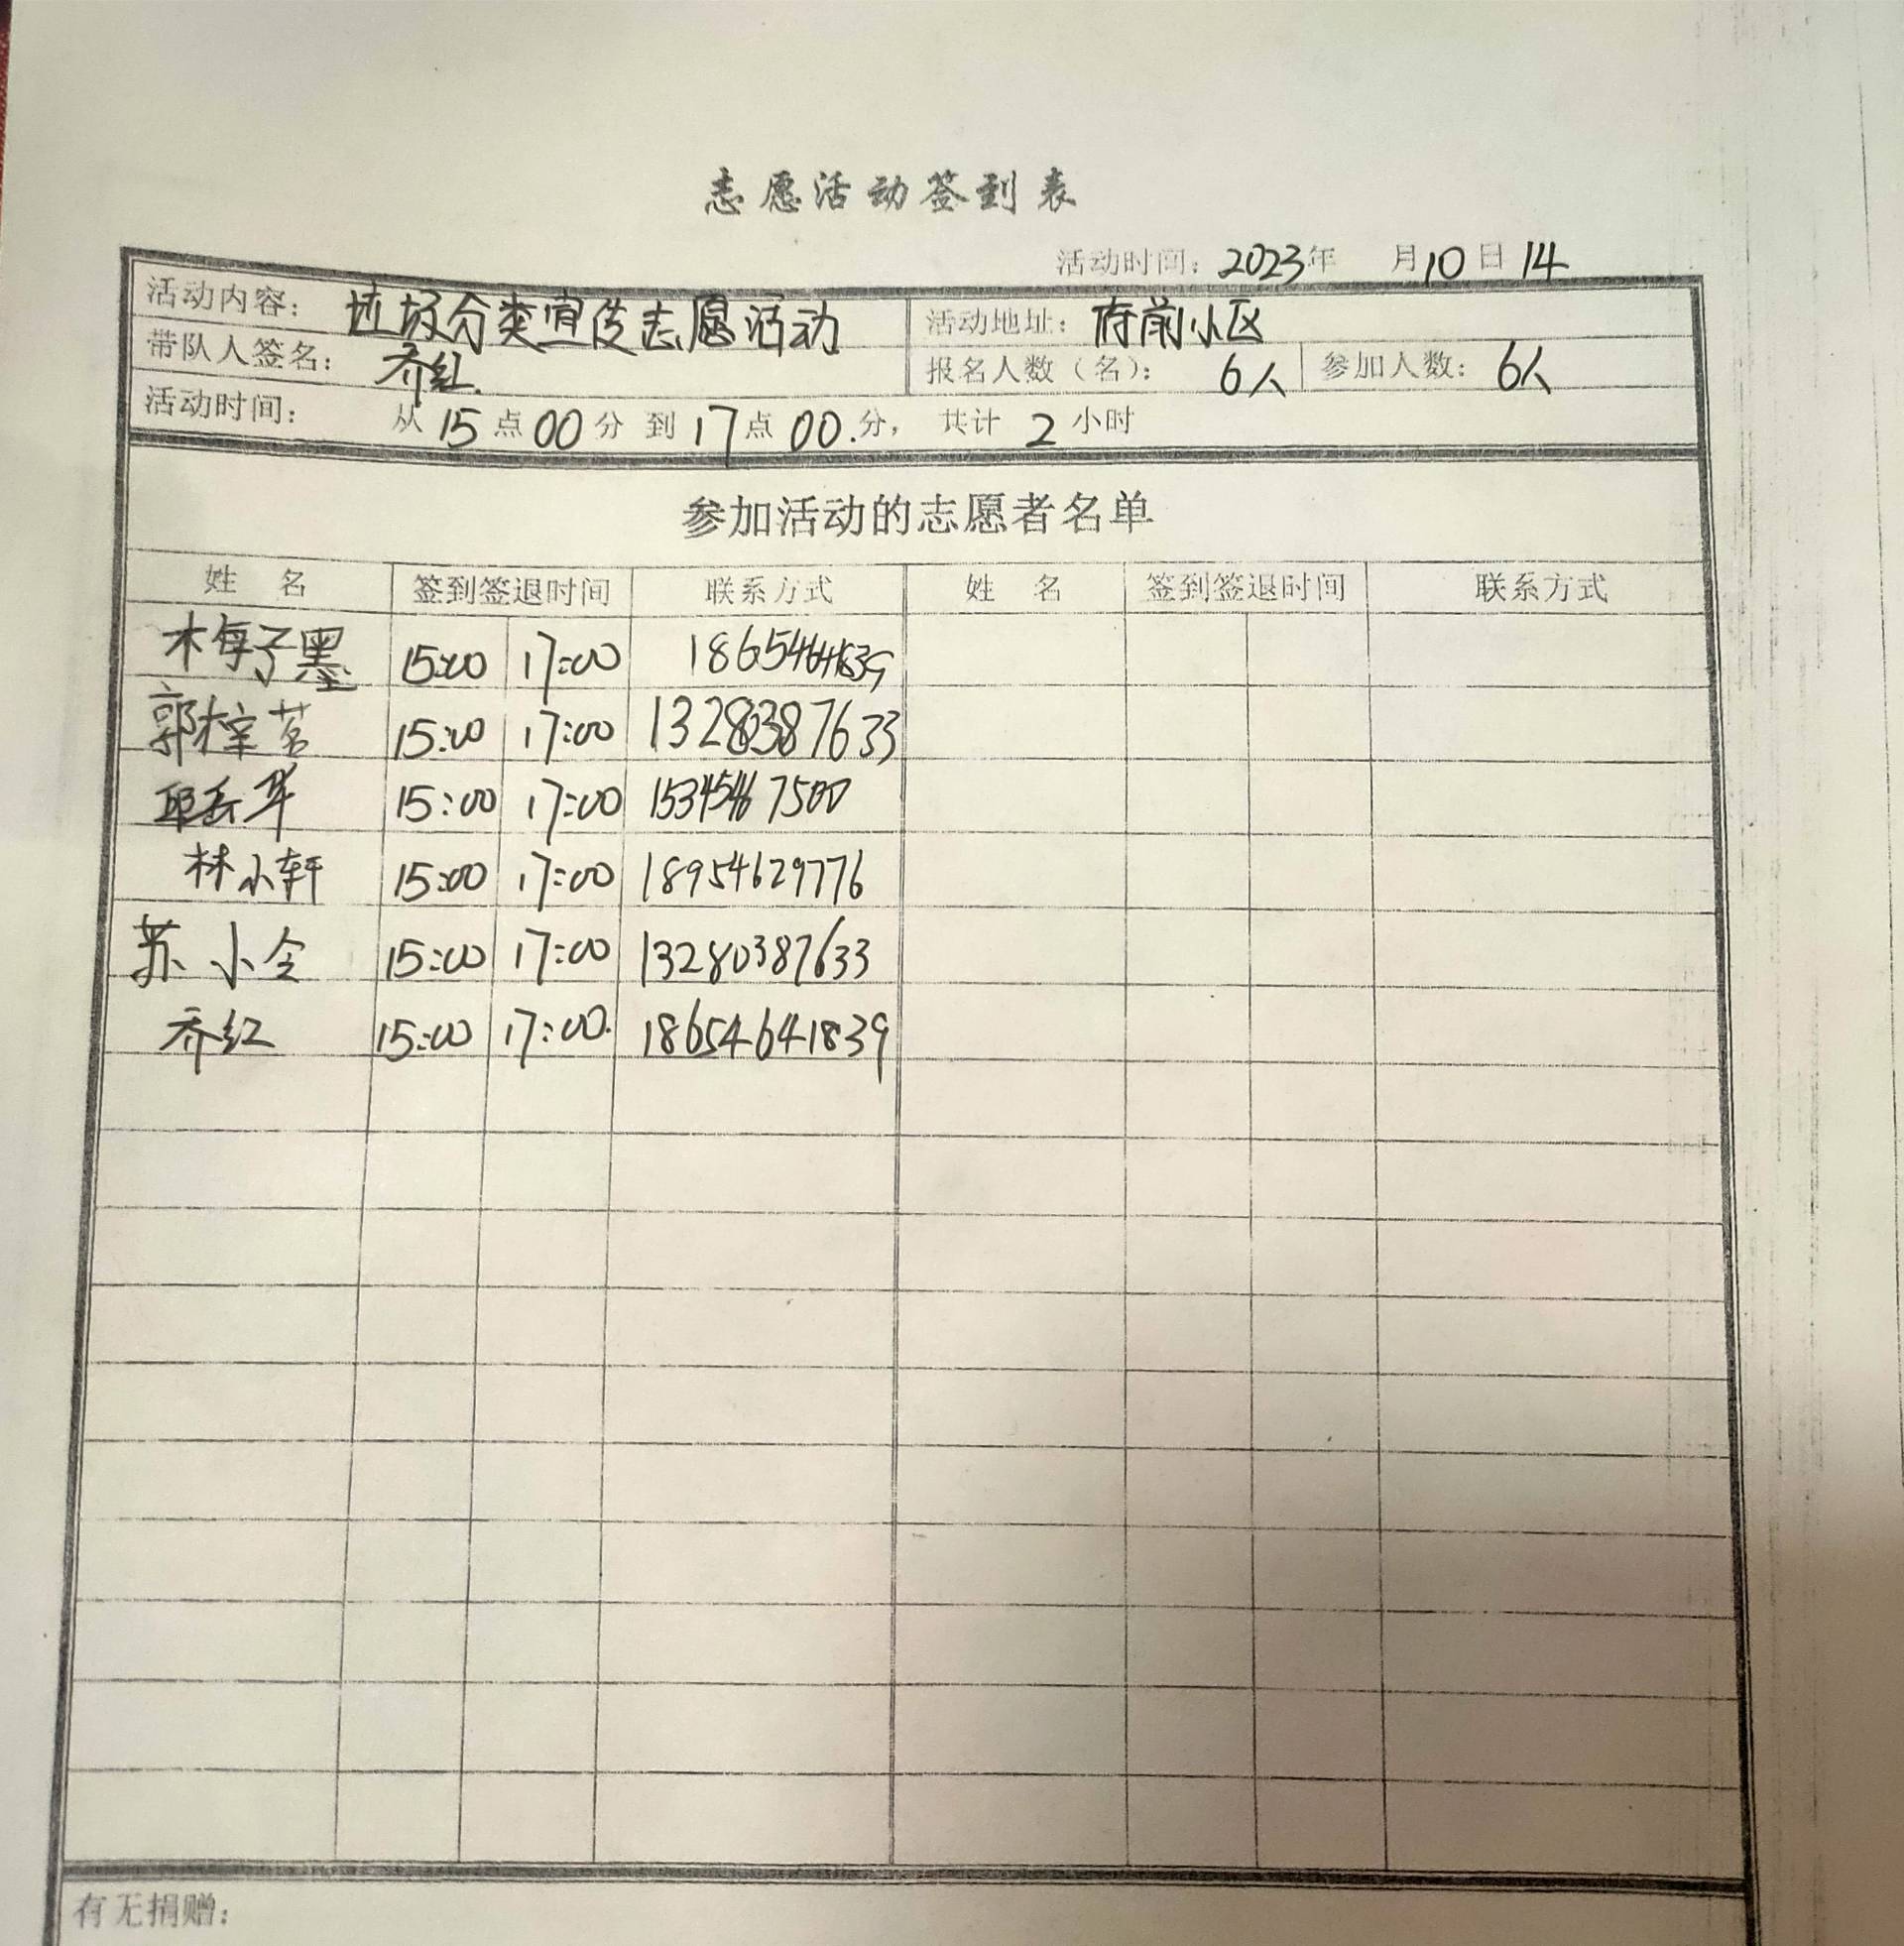 志愿活动签到表
活动时间：2023年 月10日14
活动内容：垃圾分类宣传志愿活动 活动地址：府前小区
带队人签名：乔红. 报名人数（名）： 6人 参加人数：6人
活动时间： 从15点00分到17点00.分， 共计 2 小时
参加活动的志愿者名单
姓 名 签到签退时间 联系方式 姓 名 签到签退时间 联系方式
梅子墨 15:00 17:00
郭梓茗 15:00 17:00 13280387633
15:00 17:00 15345467500
林小轩 15:00 17:00 18954629776
苏小全 15:00 17:00 13280387633
乔红 15:00 17:00. 18654641839
有无捐赠：